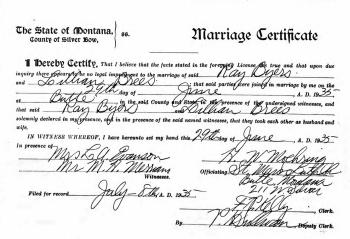 The State of Montana,
County of Silver Bow,
ss.
Marriage Certificate
I Hereby Certify, That I believe the facts stated in the foregoing License to be true and that upon due
inquiry there appearing to be no legal impediment to the marriage of said Ray Byers
and Lillian Brees that said parties were joined in marriage by me on the
29th day of June A. D. 1935
at Butte in the said County and State in the presence of the undersigned witnesses, and
that said Ray Byers and Lillian Brees
solemnly declared in my presence, and in the presence of the said named witnesses, that they took each other as husband and
wife.
IN WITNESS WHEREOF, I have hereunto set my hand this 29th day of June A. D. 1935
In presence of
Mrs L. A. Evanson
Mr M. H.
Witnesses.
H. W. Moehring
Officiating
Butte Montana
211 W Silver
Filed for record July 8th A. D. 1935
Clerk.
By Deputy Clerk.